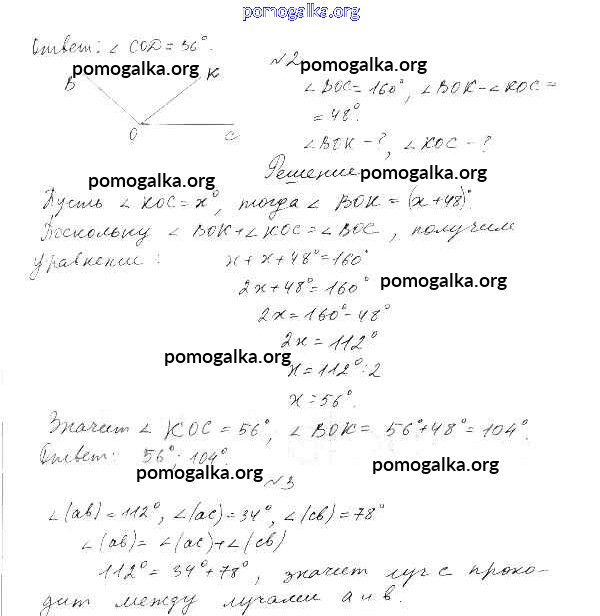 pomogalka.org
Ответ: ∠ COD = 36°.
pomogalka.org
В К
О С
№2
pomogalka.org
∠ВОС = 160°, ∠ВОК - ∠КОС =
= 48°.
∠ВОК - ?, ∠КОС - ?
Решение
pomogalka.org
pomogalka.org
Пусть ∠ КОС = х°, тогда ∠ ВОК = (х+48)°
Поскольку ∠ ВОК + ∠ КОС = ∠ ВОС, получим
уравнение:
х + х + 48° = 160°
2х + 48° = 160°
pomogalka.org
2х = 160° - 48°
2х = 112°
pomogalka.org
х = 112° : 2
х = 56°.
Значит ∠ КОС = 56°, ∠ ВОК = 56° + 48° = 104°.
Ответ: 56°; 104°.
pomogalka.org
pomogalka.org
№3
∠(ab) = 112°, ∠(ac) = 34°, ∠(cb) = 78°
∠(ab) = ∠(ac) + ∠(cb)
112° = 34° + 78°, значит луч с прохо-
дит между лучами а и в.